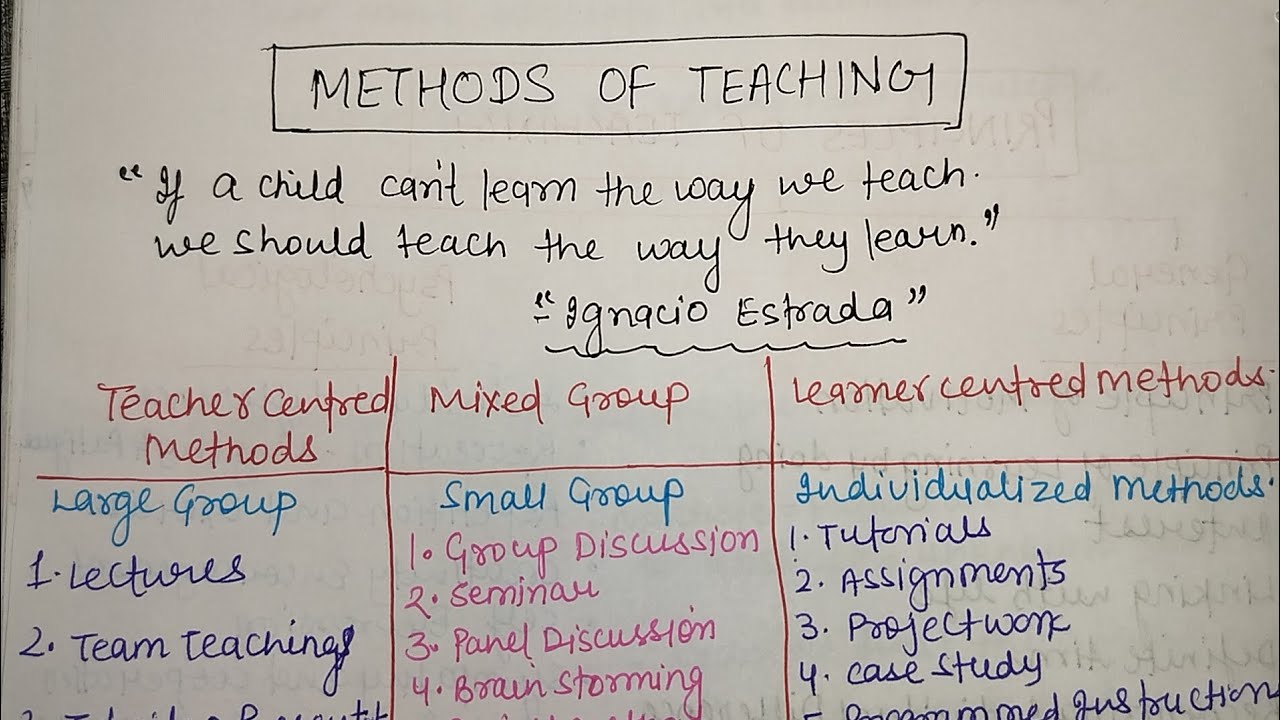 METHODS OF TEACHING
"If a child can't learn the way we teach.
we should teach the way they learn."
"Ignacio Estrada"
Teacher Centred
Methods
Mixed Group
Learner centred methods.
Large Group
1. Lectures
2. Team Teaching
Small Group
1. Group Discussion
2. Seminar
3. Panel Discussion
4. Brain storming
Individualized methods.
1. Tutorials
2. Assignments
3. Project work
4. Case study
5. Programmed Instruction